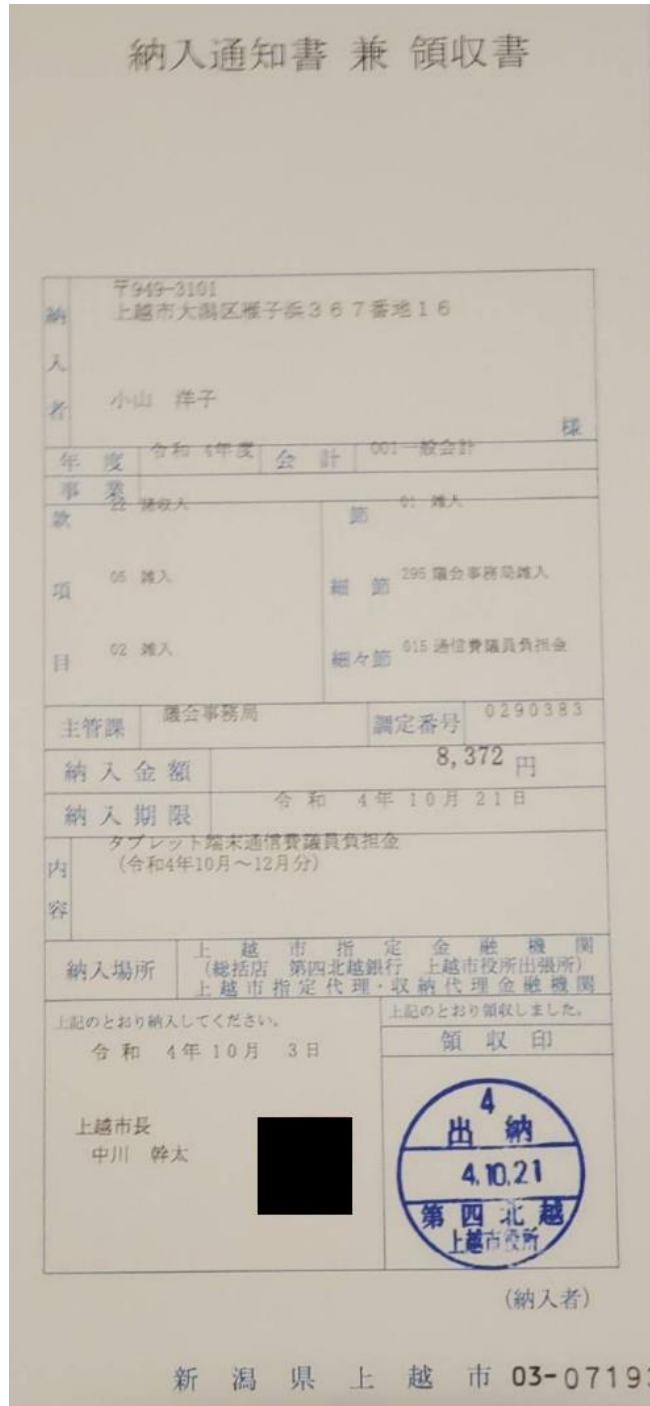 納入通知書 兼 領収書
〒949-3101
上越市大潟区雁子浜367番地16
納入者
小山 洋子
様
年度 令和 4年度 会計 001一般会計
事業
款 22 諸収入 節 01 雑入
項 05 雑入 細節 295 議会事務局雑入
目 02 雑入 細々節 015 通信費議員負担金
主管課 議会事務局 調定番号 0290383
納入金額 8,372 円
納入期限 令和 4年10月21日
内容 タブレット端末通信費議員負担金
(令和4年10月~12月分)
納入場所 上越市指定金融機関
(総括店 第四北越銀行 上越市役所出張所)
上越市指定代理・収納代理金融機関
上記のとおり納入してください。
令和 4年10月 3日
上越市長
中川 幹太
上記のとおり領収しました。
領収印
4
出納
4.10.21
第四北越
上越市役所
(納入者)
新潟県上越市 03-07193